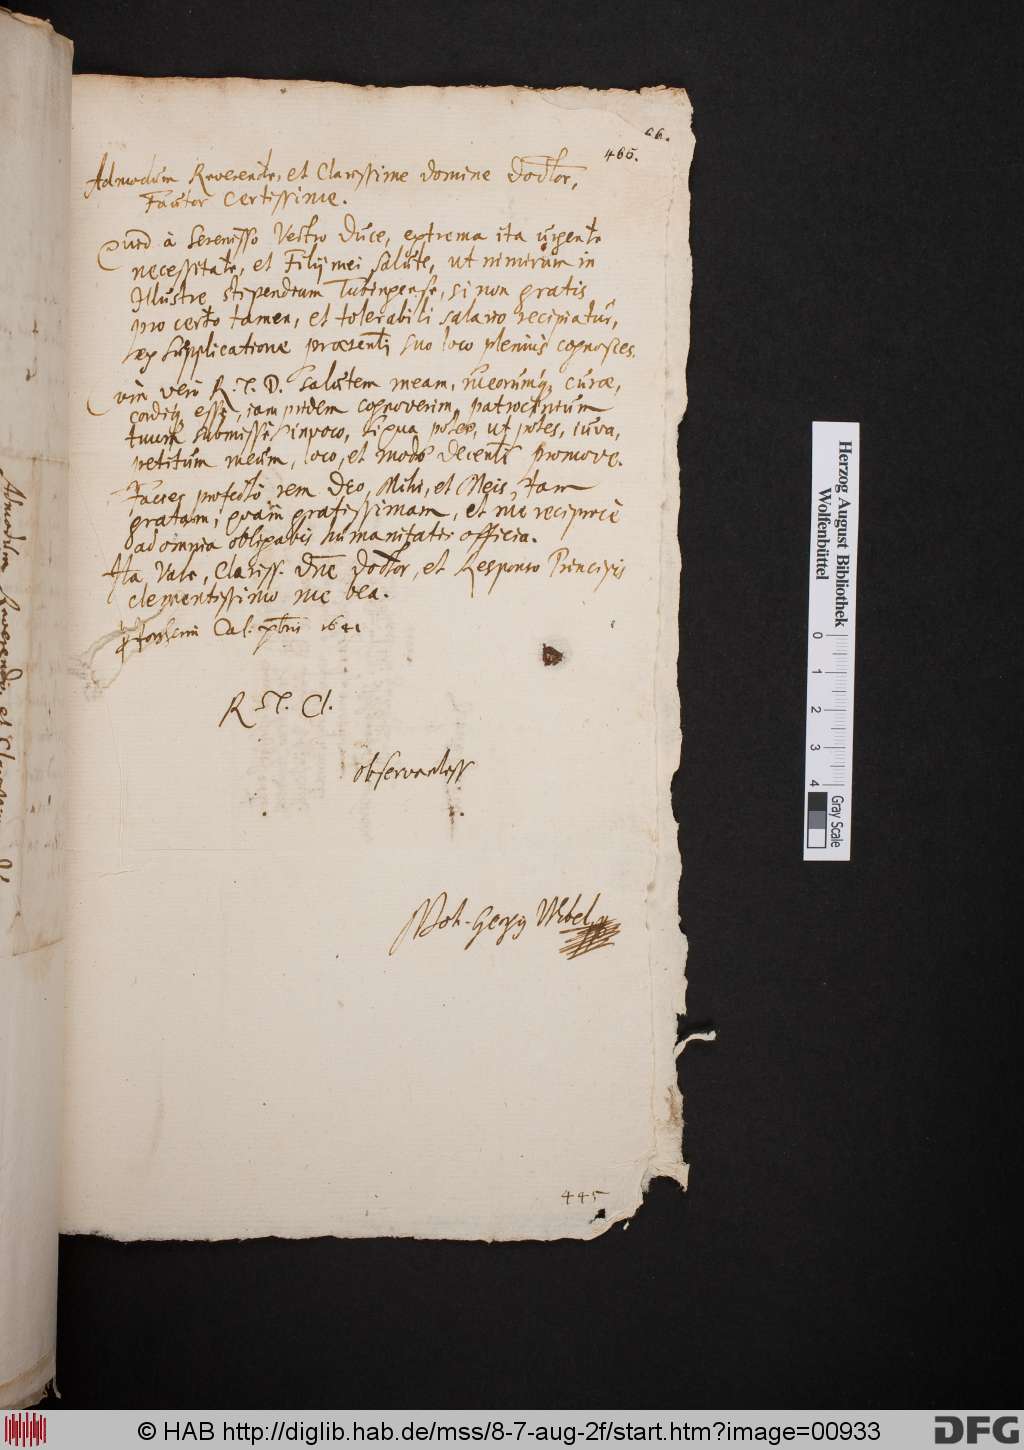 66.
465.
Admodum Reverende, et Clarissime Domine Doctor,
Fautor Certissime.
Quid à Sereniss̃o Vestro Duce, extrema ita urgente
necessitate, et Filij mei salute, ut nimirùm in
Illustre stipendium Tubingense, si non gratis
pro certo tamen, et tolerabili salario recipiatur,
ex Supplicatione præsenti suo loco plenius cognosces.
Cùm verò R. T. D. salutem meam, meorumq̃ curæ,
cordiq̃ esse, iam pridem cognoverim, patrocinium
tuum submissè invoco, si qua potes, ut potes, iuva,
petitum meum, loco, et modo decenti promove.
Facies profectò rem Deo, Mihi, et Meis, tam
gratam, quàm gratissimam, et me reciprocè
ad omnia obligabis humanitatis officia.
Ita Vale, Clariss. Dñe Doctor, et Responso Principis
clementissimo me bea.
Cal. xbris 1641
R. T. Cl.
Observantiss
Joh. Georg Wibel
445
Admodum Reverende, et Clarissime
Herzog August Bibliothek
Wolfenbüttel
0 1 2 3 4
Gray Scale
© HAB http://diglib.hab.de/mss/8-7-aug-2f/start.htm?image=00933
DFG